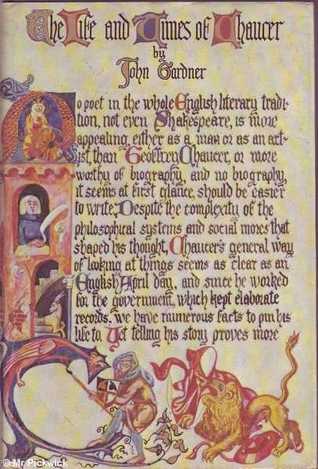 The Life and Times of Chaucer
by
John Gardner
No poet in the whole English literary tradi-
tion, not even Shakespeare, is more
appealing, either as a man or as an art-
ist, than Geoffrey Chaucer, or more
worthy of biography, and no biography,
it seems at first glance, should be easier
to write. Despite the complexity of the
philosophical systems and social mores that
shaped his thought, Chaucer's general way
of looking at things seems as clear as an
English April day, and since he worked
for the government, which kept elaborate
records, we have numerous facts to pin his
life to. Yet telling his story proves more
© Mr Pickwick